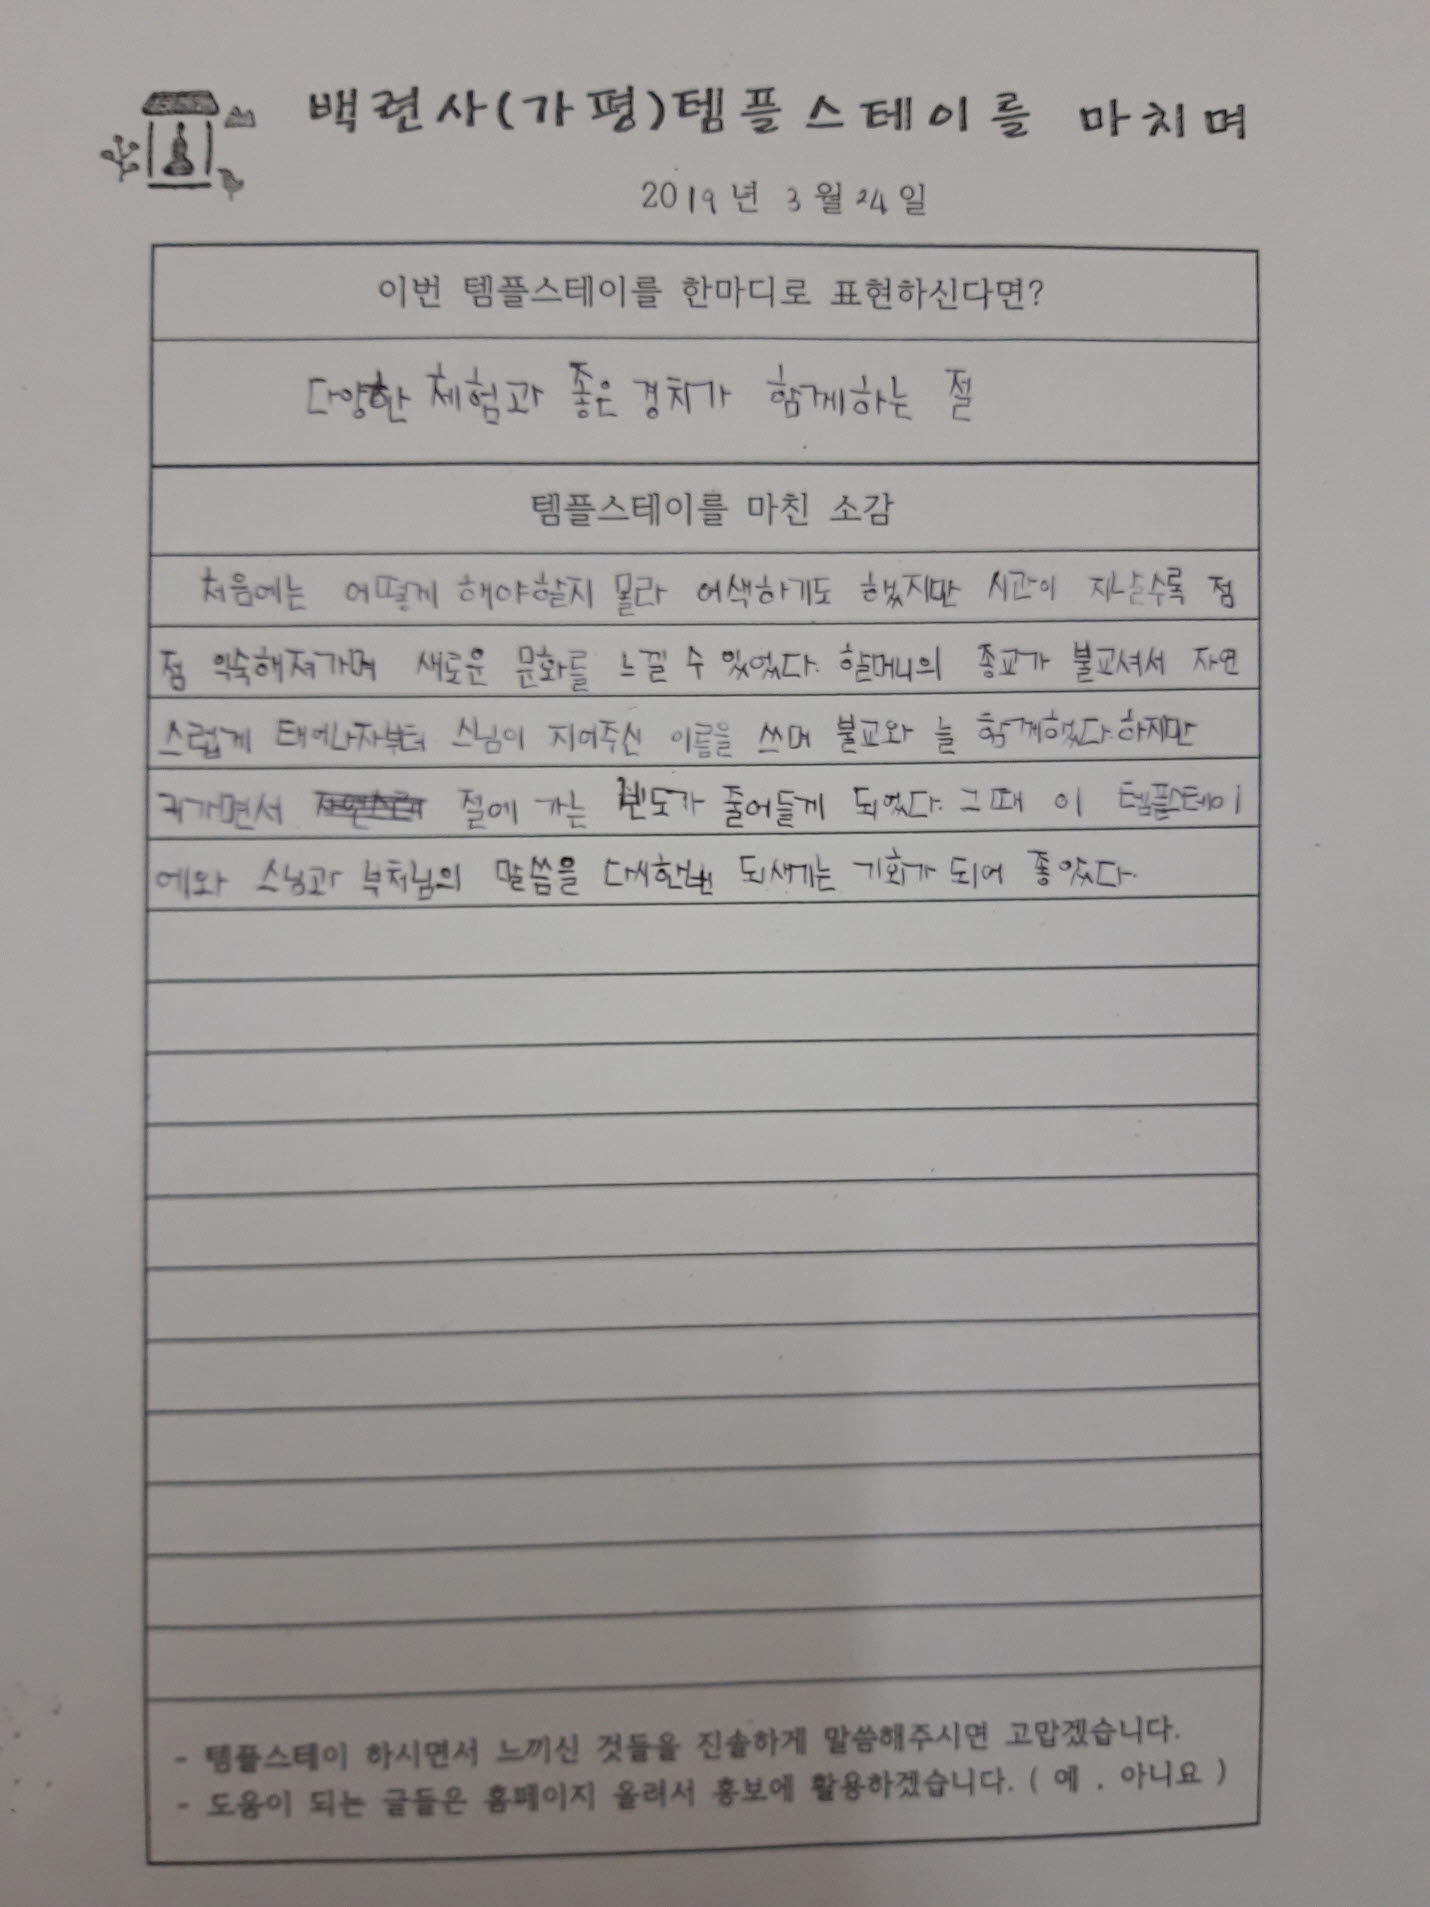 백련사(가평)템플스테이를 마치며
2019년 3월 24일
이번 템플스테이를 한마디로 표현하신다면?
다양한 체험과 좋은 경치가 함께하는 절
템플스테이를 마친 소감
처음에는 어떻게 해야할지 몰라 어색하기도 했지만 시간이 지날수록 점
점 익숙해져가며 새로운 문화를 느낄 수 있었다. 할머니의 종교가 불교셔서 자연
스럽게 태어나자부터 스님이 지어주신 이름을 쓰며 불교와 늘 함께했었다. 하지만
커가면서 절에 가는 빈도가 줄어들게 되었다. 그때 이 템플스테이
에와 스님과 부처님의 말씀을 다시한번 되새기는 기회가 되어 좋았다.
- 템플스테이 하시면서 느끼신 것들을 진솔하게 말씀해주시면 고맙겠습니다.
- 도움이 되는 글들은 홈페이지 올려서 홍보에 활용하겠습니다. ( 예 , 아니요 )